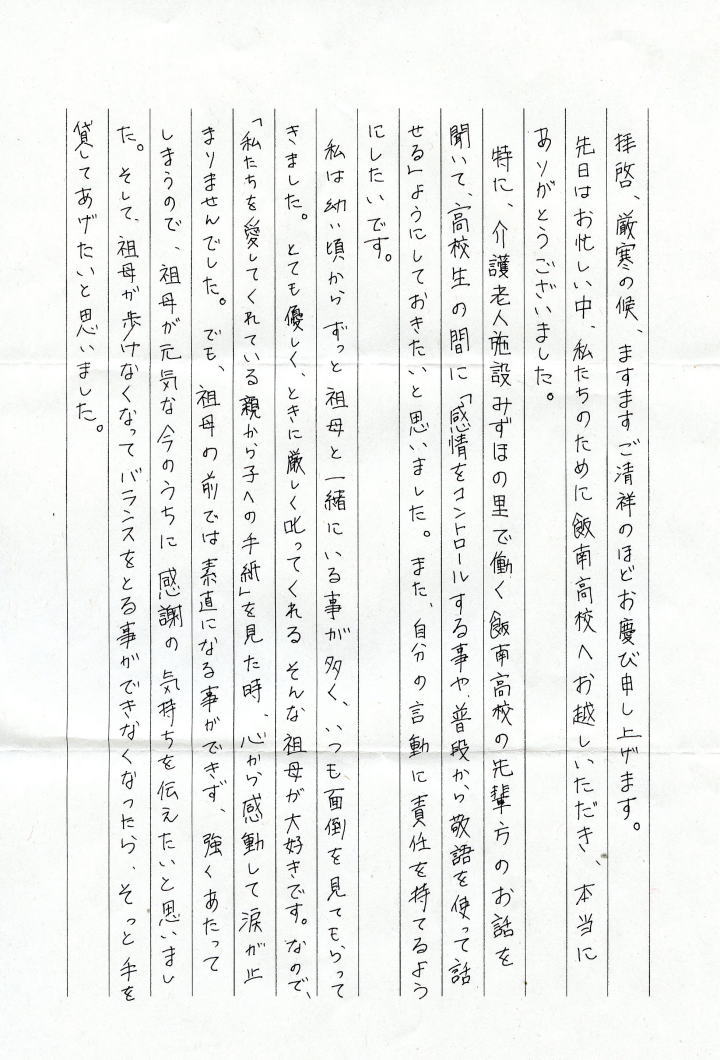 拝啓、厳寒の候、ますますご清祥のほどお慶び申し上げます。
先日はお忙しい中、私たちのために飯南高校へお越しいただき、本当に
ありがとうございました。
特に、介護老人施設みずほの里で働く飯南高校の先輩方のお話を
聞いて、高校生の間に「感情をコントロールする事や普段から敬語を使って話
せる」ようにしておきたいと思いました。また、自分の言動に責任を持てるよう
にしたいです。
私は幼い頃からずっと祖母と一緒にいる事が多く、いつも面倒を見てもらって
きました。とても優しく、ときに厳しく叱ってくれるそんな祖母が大好きです。なので、
「私たちを愛してくれている親から子への手紙」を見た時、心から感動して涙が止
まりませんでした。でも、祖母の前では素直になる事ができず、強くあたって
しまうので、祖母が元気な今のうちに感謝の気持ちを伝えたいと思いまし
た。そして、祖母が歩けなくなってバランスをとる事ができなくなったら、そっと手を
貸してあげたいと思いました。